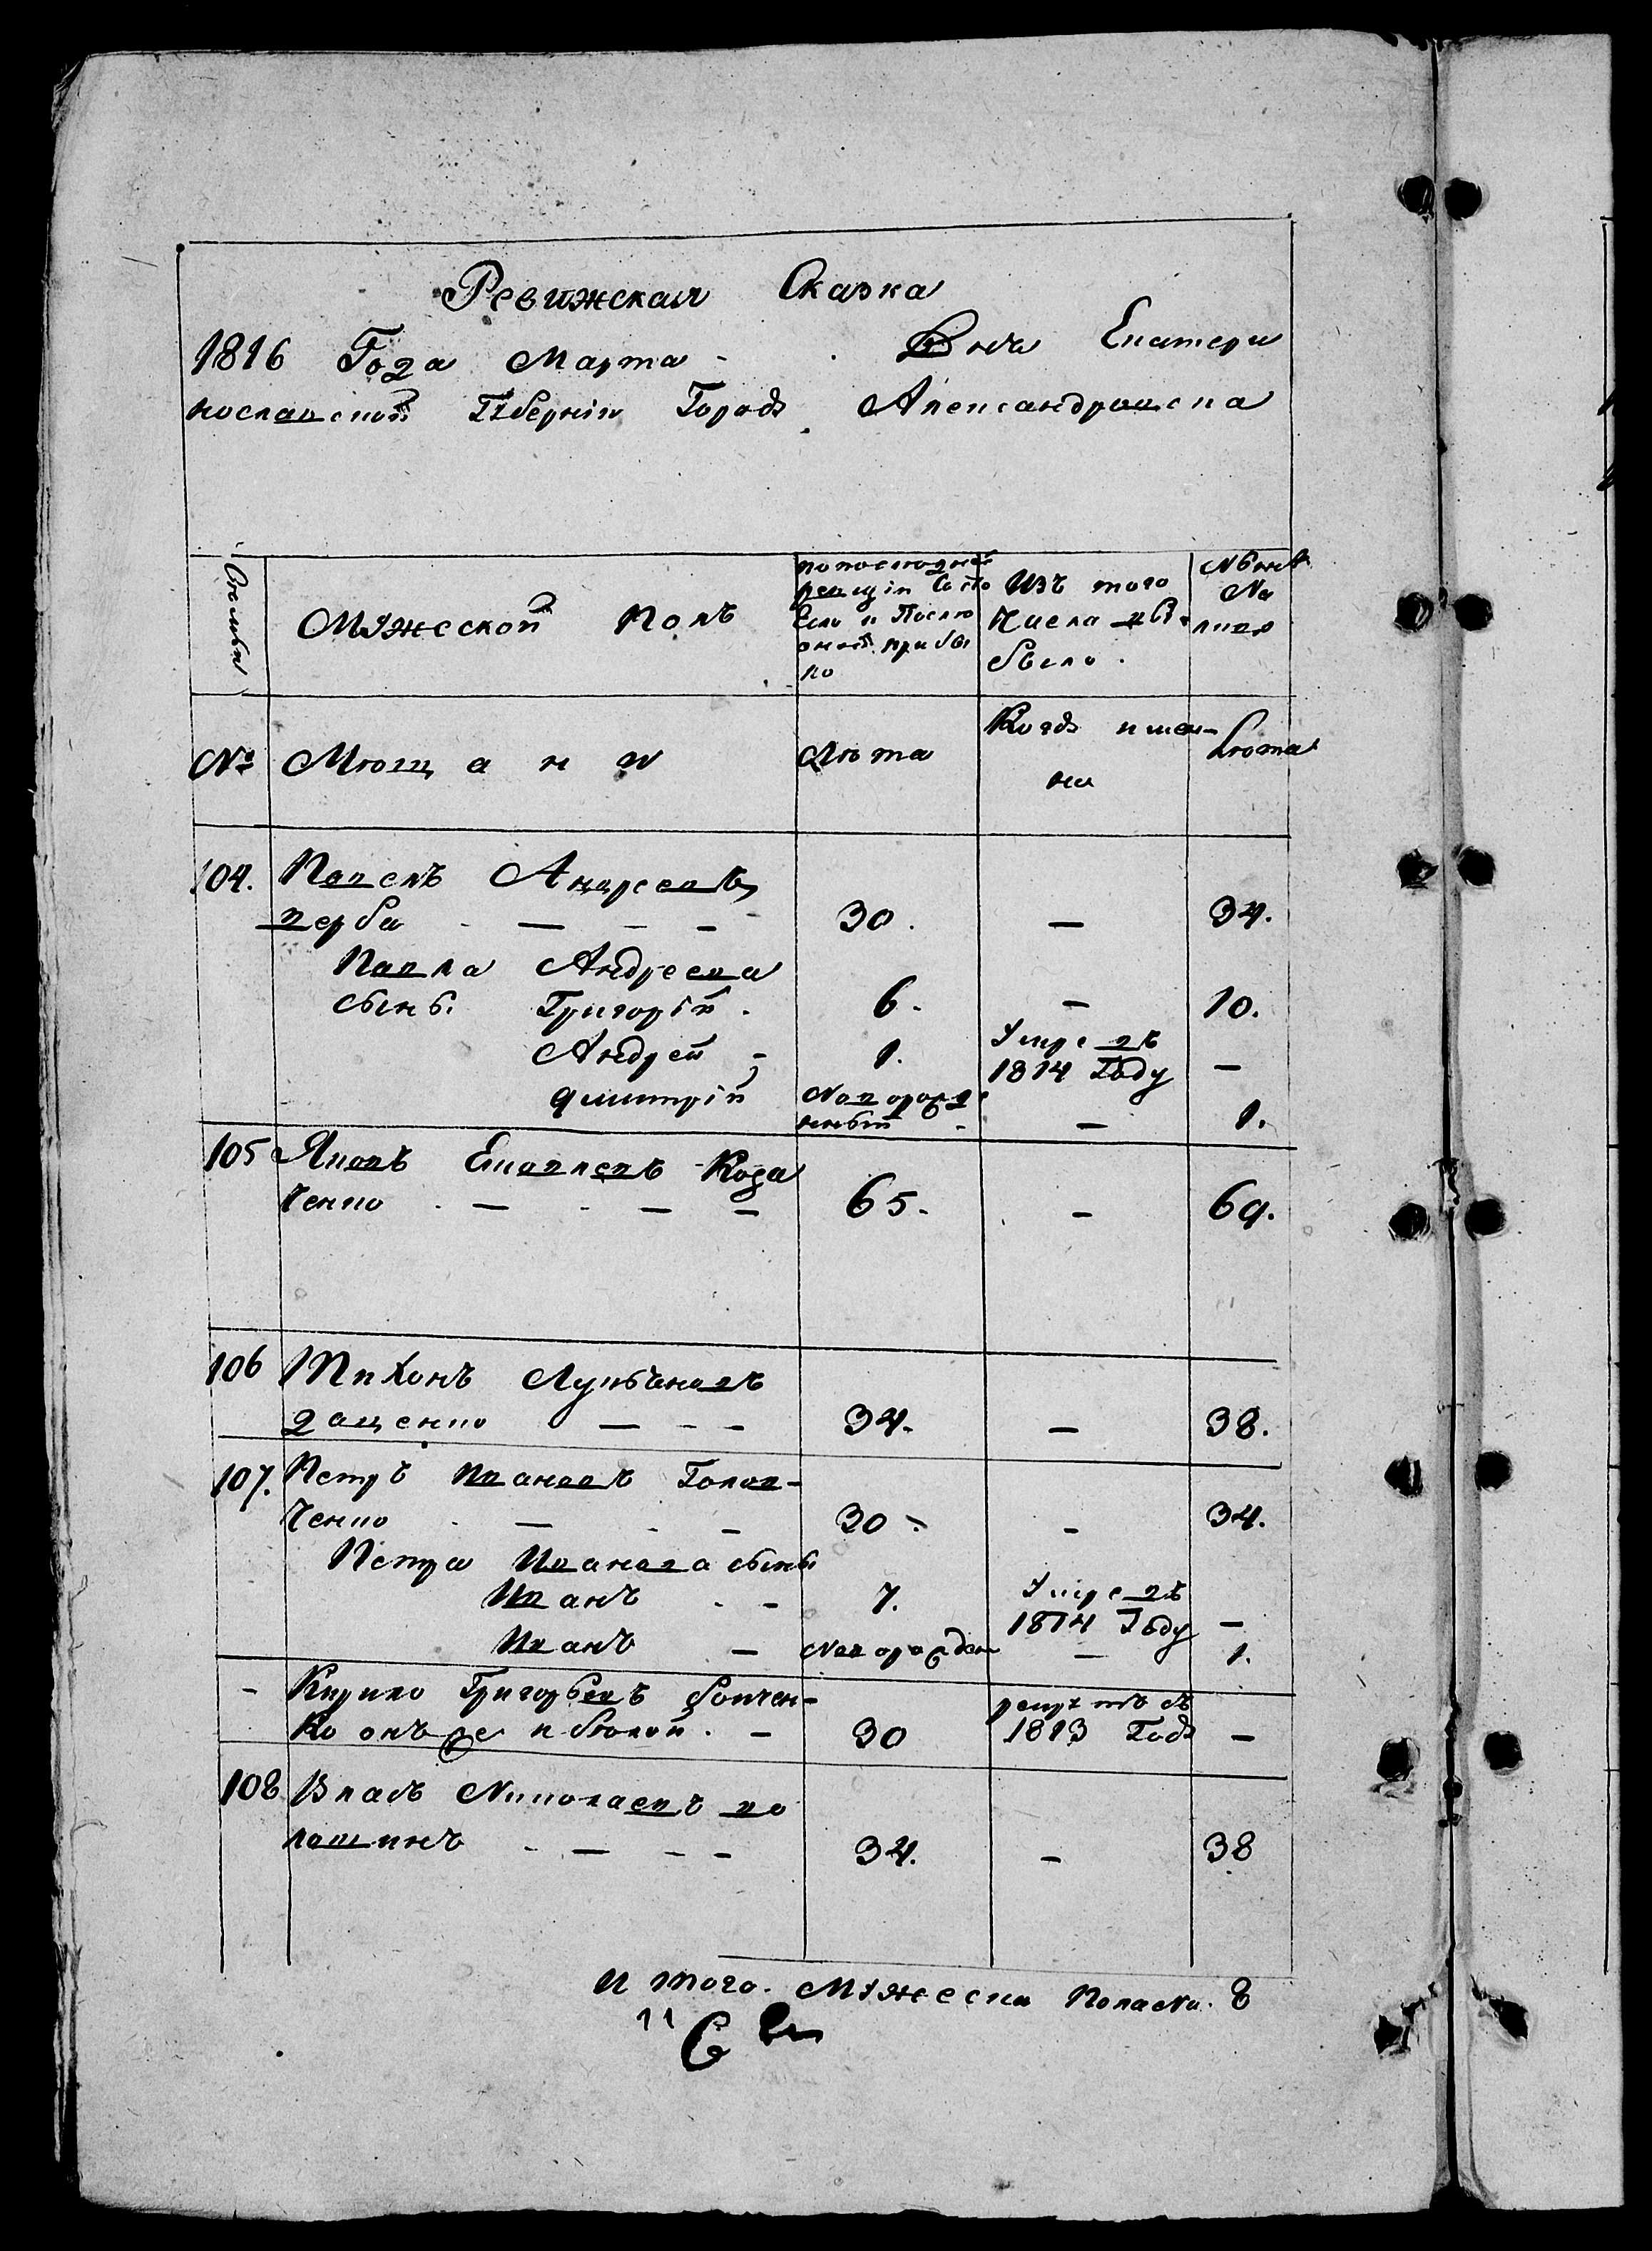 Ревижская Сказка
1816 Года Марта - Дня Екатери
нославской Губерніи Города Александровска
Семьи
Мужеской Полъ
по последней
ревизіи Состо
яло и После
оной прибы
ло
Изъ того
Числа вы
было.
Ныне
На
лицо
№
Мещ а н я
Лета
Когда имен-
но
Лета
104. Павелъ Андреевъ
верба - - - - 30. - 34.
Павла Андреева
сынъ. Григорій. 6. - 10.
Андрей - 1. Умре въ 1814 Году -
Дмитрій Новорожденный - 1.
105 Яковъ Яковлевъ Коза
ченко - - - 65. - 69.
106 Тихонъ Лукьяновъ
даценко - - - 34. - 38.
107. Петръ Ивановъ Голов-
ченко - - 30. - 34.
Петра Иванова сыны
Иванъ - 7. Умре въ 1814 Году -
Иванъ - Новорожден - 1.
- Кирило Григорьевъ бойчен-
ко онъ же и белой. - 30 рекрутъ съ 1813 Года -
108 Власъ Николаевъ во
лошинъ - - - - 34. - 38
И того. Мужеска Пола На. 8